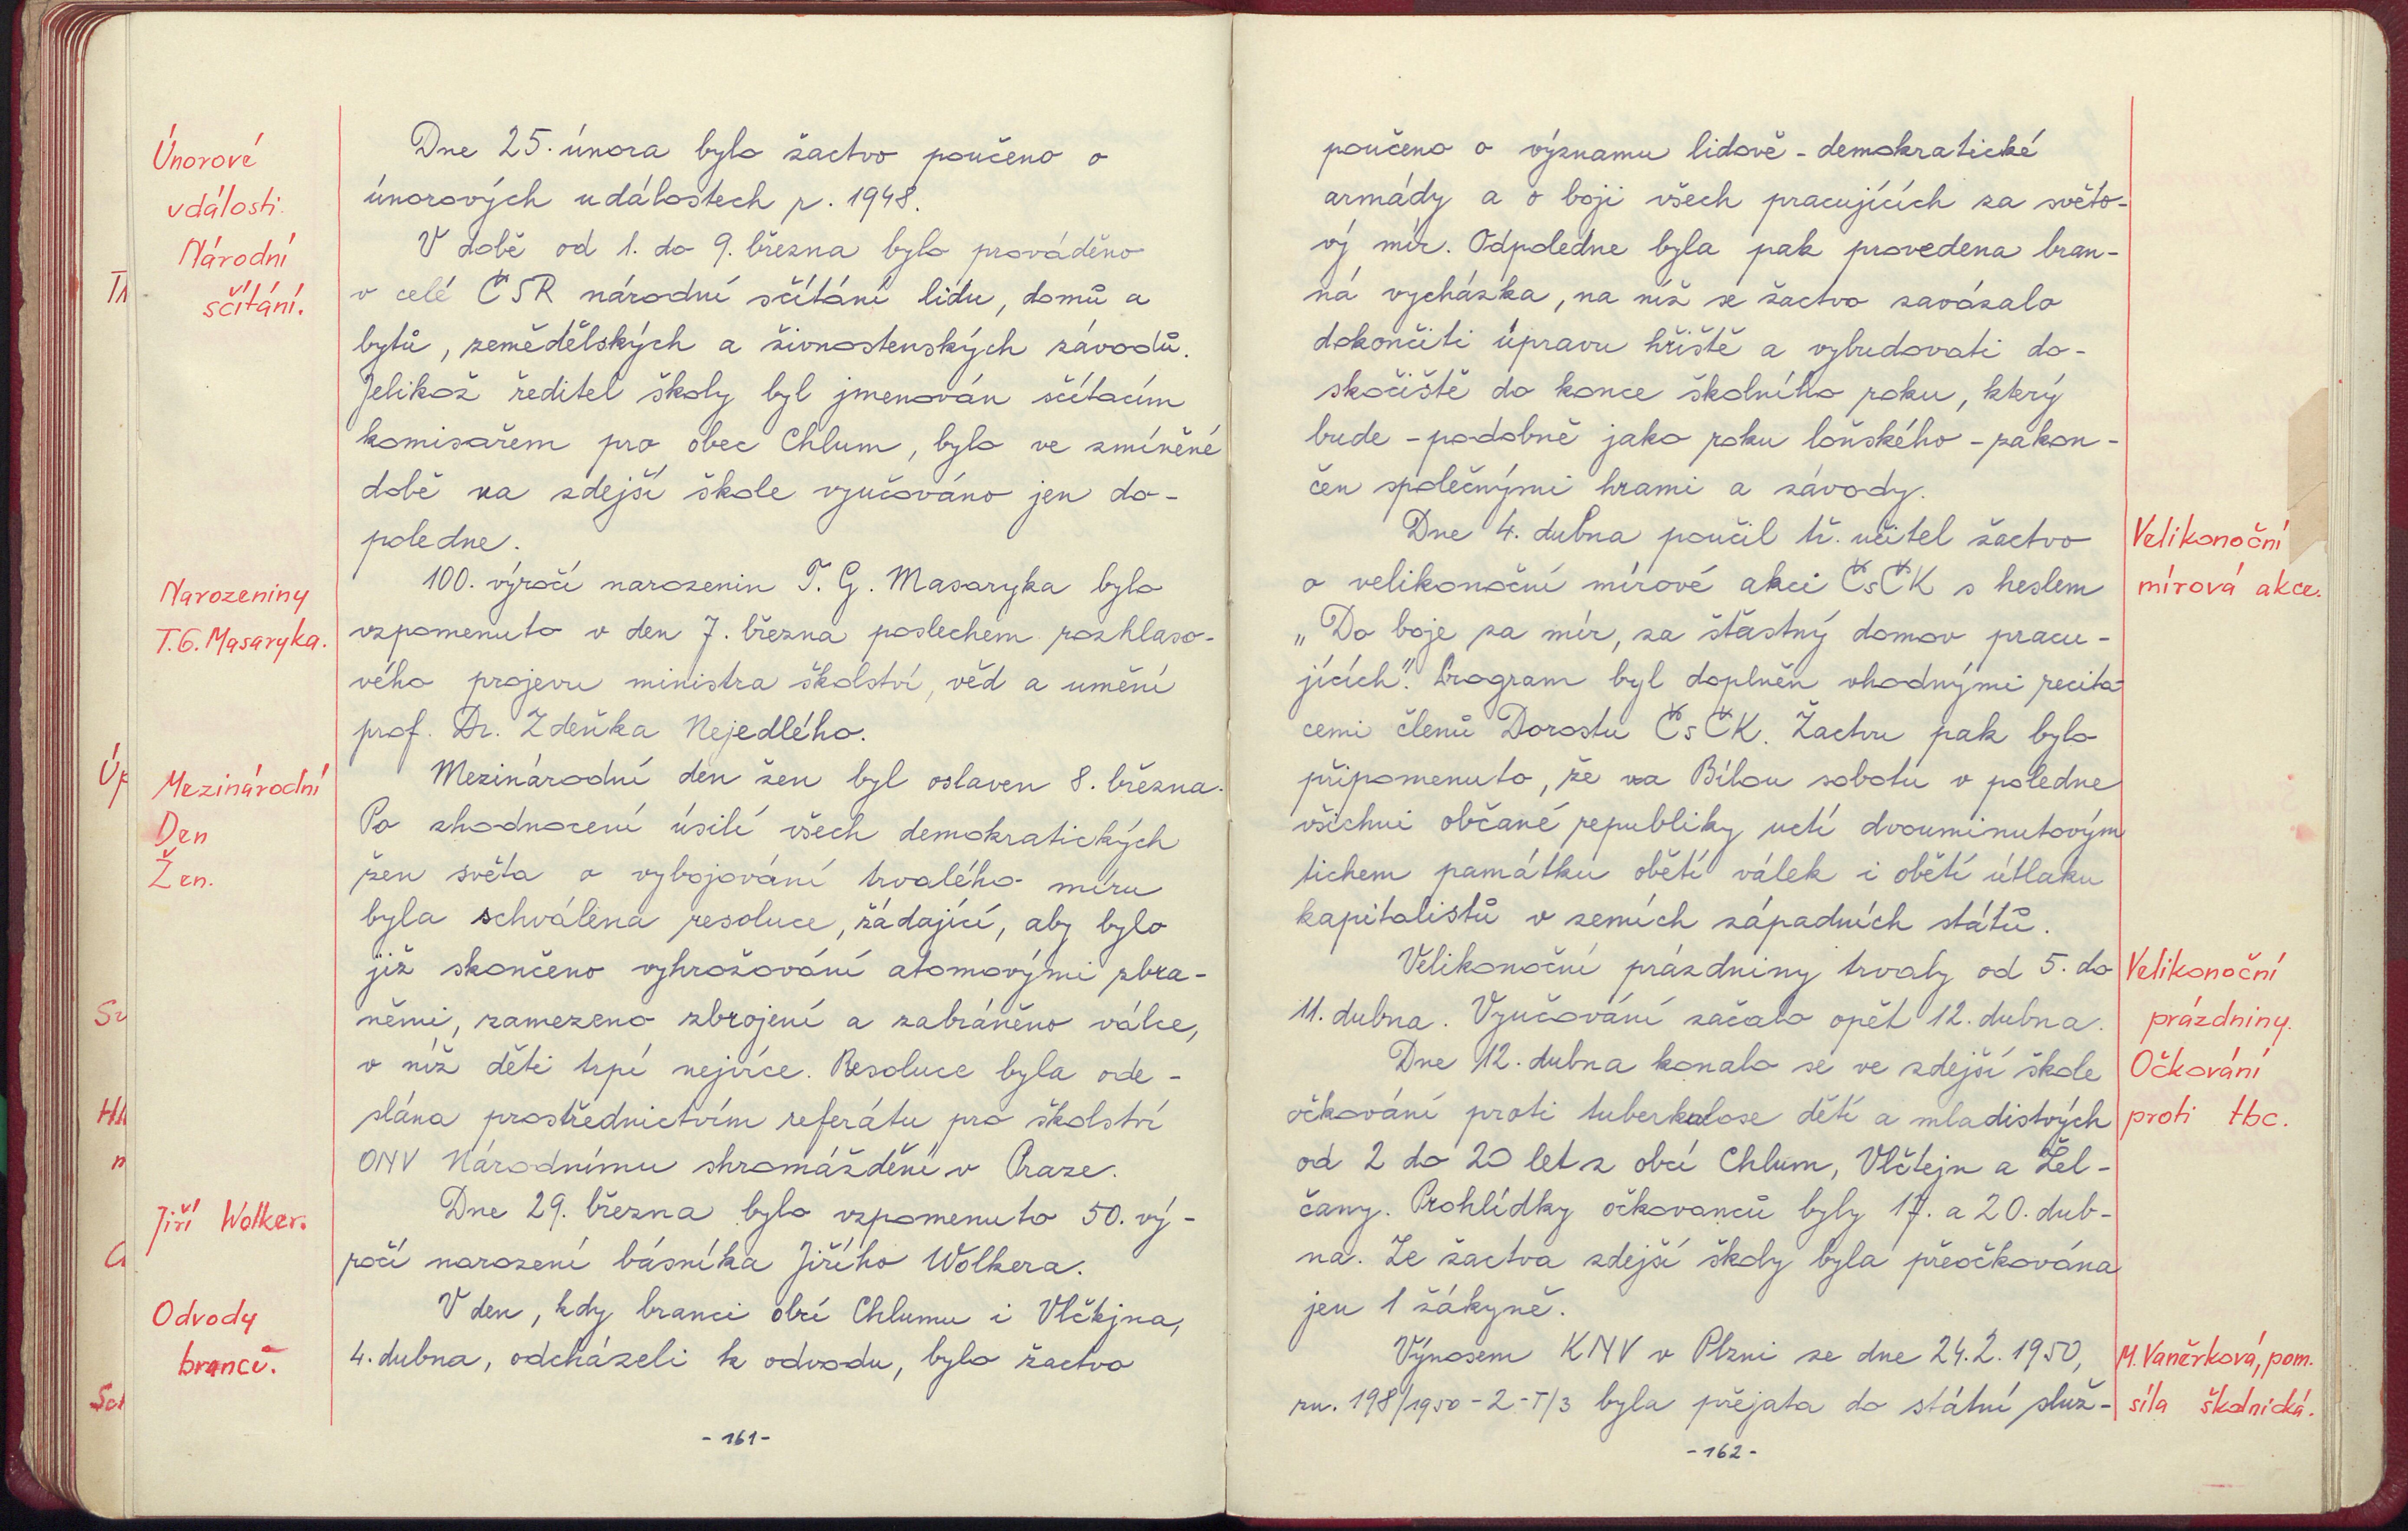 Únorové
události.
Národní
sčítání.
Narozeniny
T. G. Masaryka.
Mezinárodní
Den
Žen.
Jiří Wolker.
Odvody
branců.
Dne 25. února bylo žactvo poučeno o
únorových událostech r. 1948.
V době od 1. do 9. března bylo prováděno
v celé ČSR národní sčítání lidu, domů a
bytů, zemědělských a živnostenských závodů.
Jelikož ředitel školy byl jmenován sčítacím
komisařem pro obec Chlum, bylo ve zmíněné
době na zdejší škole vyučováno jen do-
poledne.
100. výročí narozenin T. G. Masaryka bylo
vzpomenuto v den 7. března poslechem rozhlaso-
vého projevu ministra školství, věd a umění
prof. Dr. Zdeňka Nejedlého.
Mezinárodní den žen byl oslaven 8. března.
Po zhodnocení úsilí všech demokratických
žen světa o vybojování trvalého míru
byla schválena resoluce, žádající, aby bylo
již skončeno vyhrožování atomovými zbra-
němi, zamezeno zbrojení a zabráněno válce,
v níž děti trpí nejvíce. Resoluce byla ode-
slána prostřednictvím referátu pro školství
ONV Národnímu shromáždění v Praze.
Dne 29. března bylo vzpomenuto 50. vý-
ročí narození básníka Jiřího Wolkera.
V den, kdy branci obcí Chlumu i Vlčtejna,
4. dubna, odcházeli k odvodu, bylo žactvo
- 161 -
poučeno o významu lidově - demokratické
armády a o boji všech pracujících za světo-
vý mír. Odpoledne byla pak provedena bran-
ná vycházka, na níž se žactvo zavázalo
dokončiti úpravu hřiště a vybudovati do-
skočiště do konce školního roku, který
bude - podobně jako roku loňského - zakon-
čen společnými hrami a závody.
Dne 4. dubna poučil tř. učitel žactvo
o velikonoční mírové akci ČsČK s heslem
„Do boje za mír, za šťastný domov pracu-
jících". Program byl doplněn vhodnými recita-
cemi členů Dorostu ČsČK. Žactvu pak bylo
připomenuto, že na Bílou sobotu v poledne
všichni občané republiky uctí dvouminutovým
tichem památku obětí válek i obětí útlaku
kapitalistů v zemích západních států.
Velikonoční prázdniny trvaly od 5. do
11. dubna. Vyučování začalo opět 12. dubna.
Dne 12. dubna konalo se ve zdejší škole
očkování proti tuberkulose dětí a mladistvých
od 2 do 20 let z obcí Chlum, Vlčtejn a Žel-
čany. Prohlídky očkovanců byly 17. a 20. dub-
na. Ze žactva zdejší školy byla přeočkována
jen 1 žákyně.
Výnosem KNV v Plzni ze dne 24. 2. 1950,
zn. 198/1950 - 2 - I/3 byla přejata do státní služ-
- 162 -
Velikonoční
mírová akce.
Velikonoční
prázdniny.
Očkování
proti tbc.
M. Vaněrková, pom.
síla školnická.